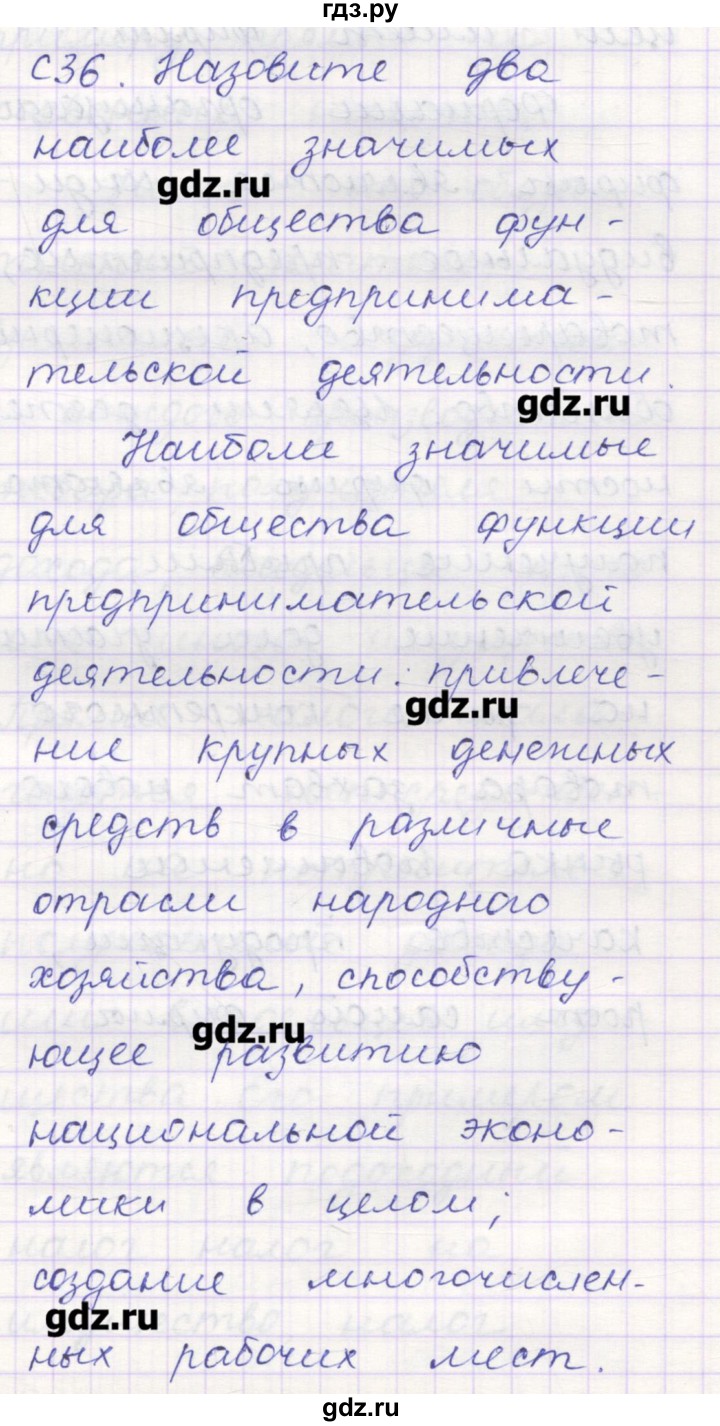 гдз.ру
С36. Назовите два
наиболее значимых
gdz.ru
для общества фун-
кции предпринима-
тельской деятельности.
gdz.ru
Наиболе значимые
для общества функции
предпринимательской
деятельности: привлече-
gdz.ru
ние крупных денежных
средств в различные
отрасли народного
хозяйства, способству-
gdz.ru
ющее развитию
национальной эконо-
мики в целом;
создание многочислен-
gdz.ru
ных рабочих мест.
gdz.ru